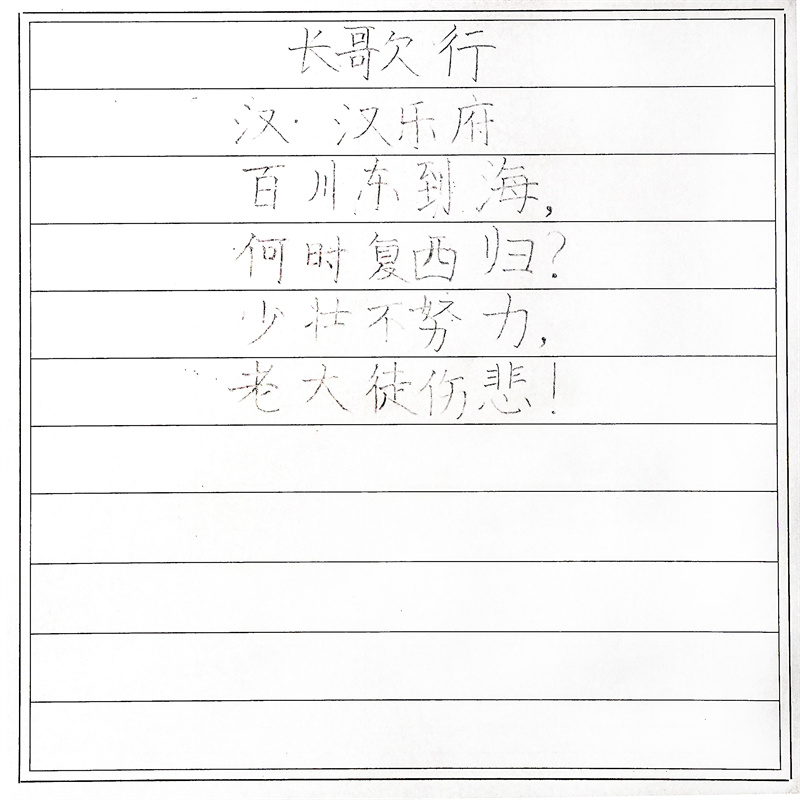 长歌行
汉·汉乐府
百川东到海,
何时复西归?
少壮不努力,
老大徒伤悲!